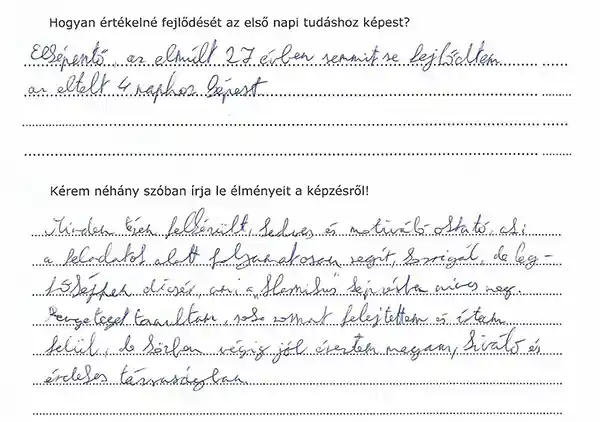 Hogyan értékelné fejlődését az első napi tudáshoz képest?
Elképesztő, az elmúlt 27 évben semmit se fejlődtem
az eltelt 4 naphoz képest
Kérem néhány szóban írja le élményeit a képzésről!
Minden téren felkészült, kedves és motiváló oktató, aki
a feladatok alatt folyamatosan segít, korrigál, de leg-
főképpen dicsér, ami a klasszikus képzésben nincs meg.
Rengeteget tanultam, sok rosszat felejtettem és írtam
felül, de közben végig jól éreztem magam, kiváló és
érdekes társaságban.